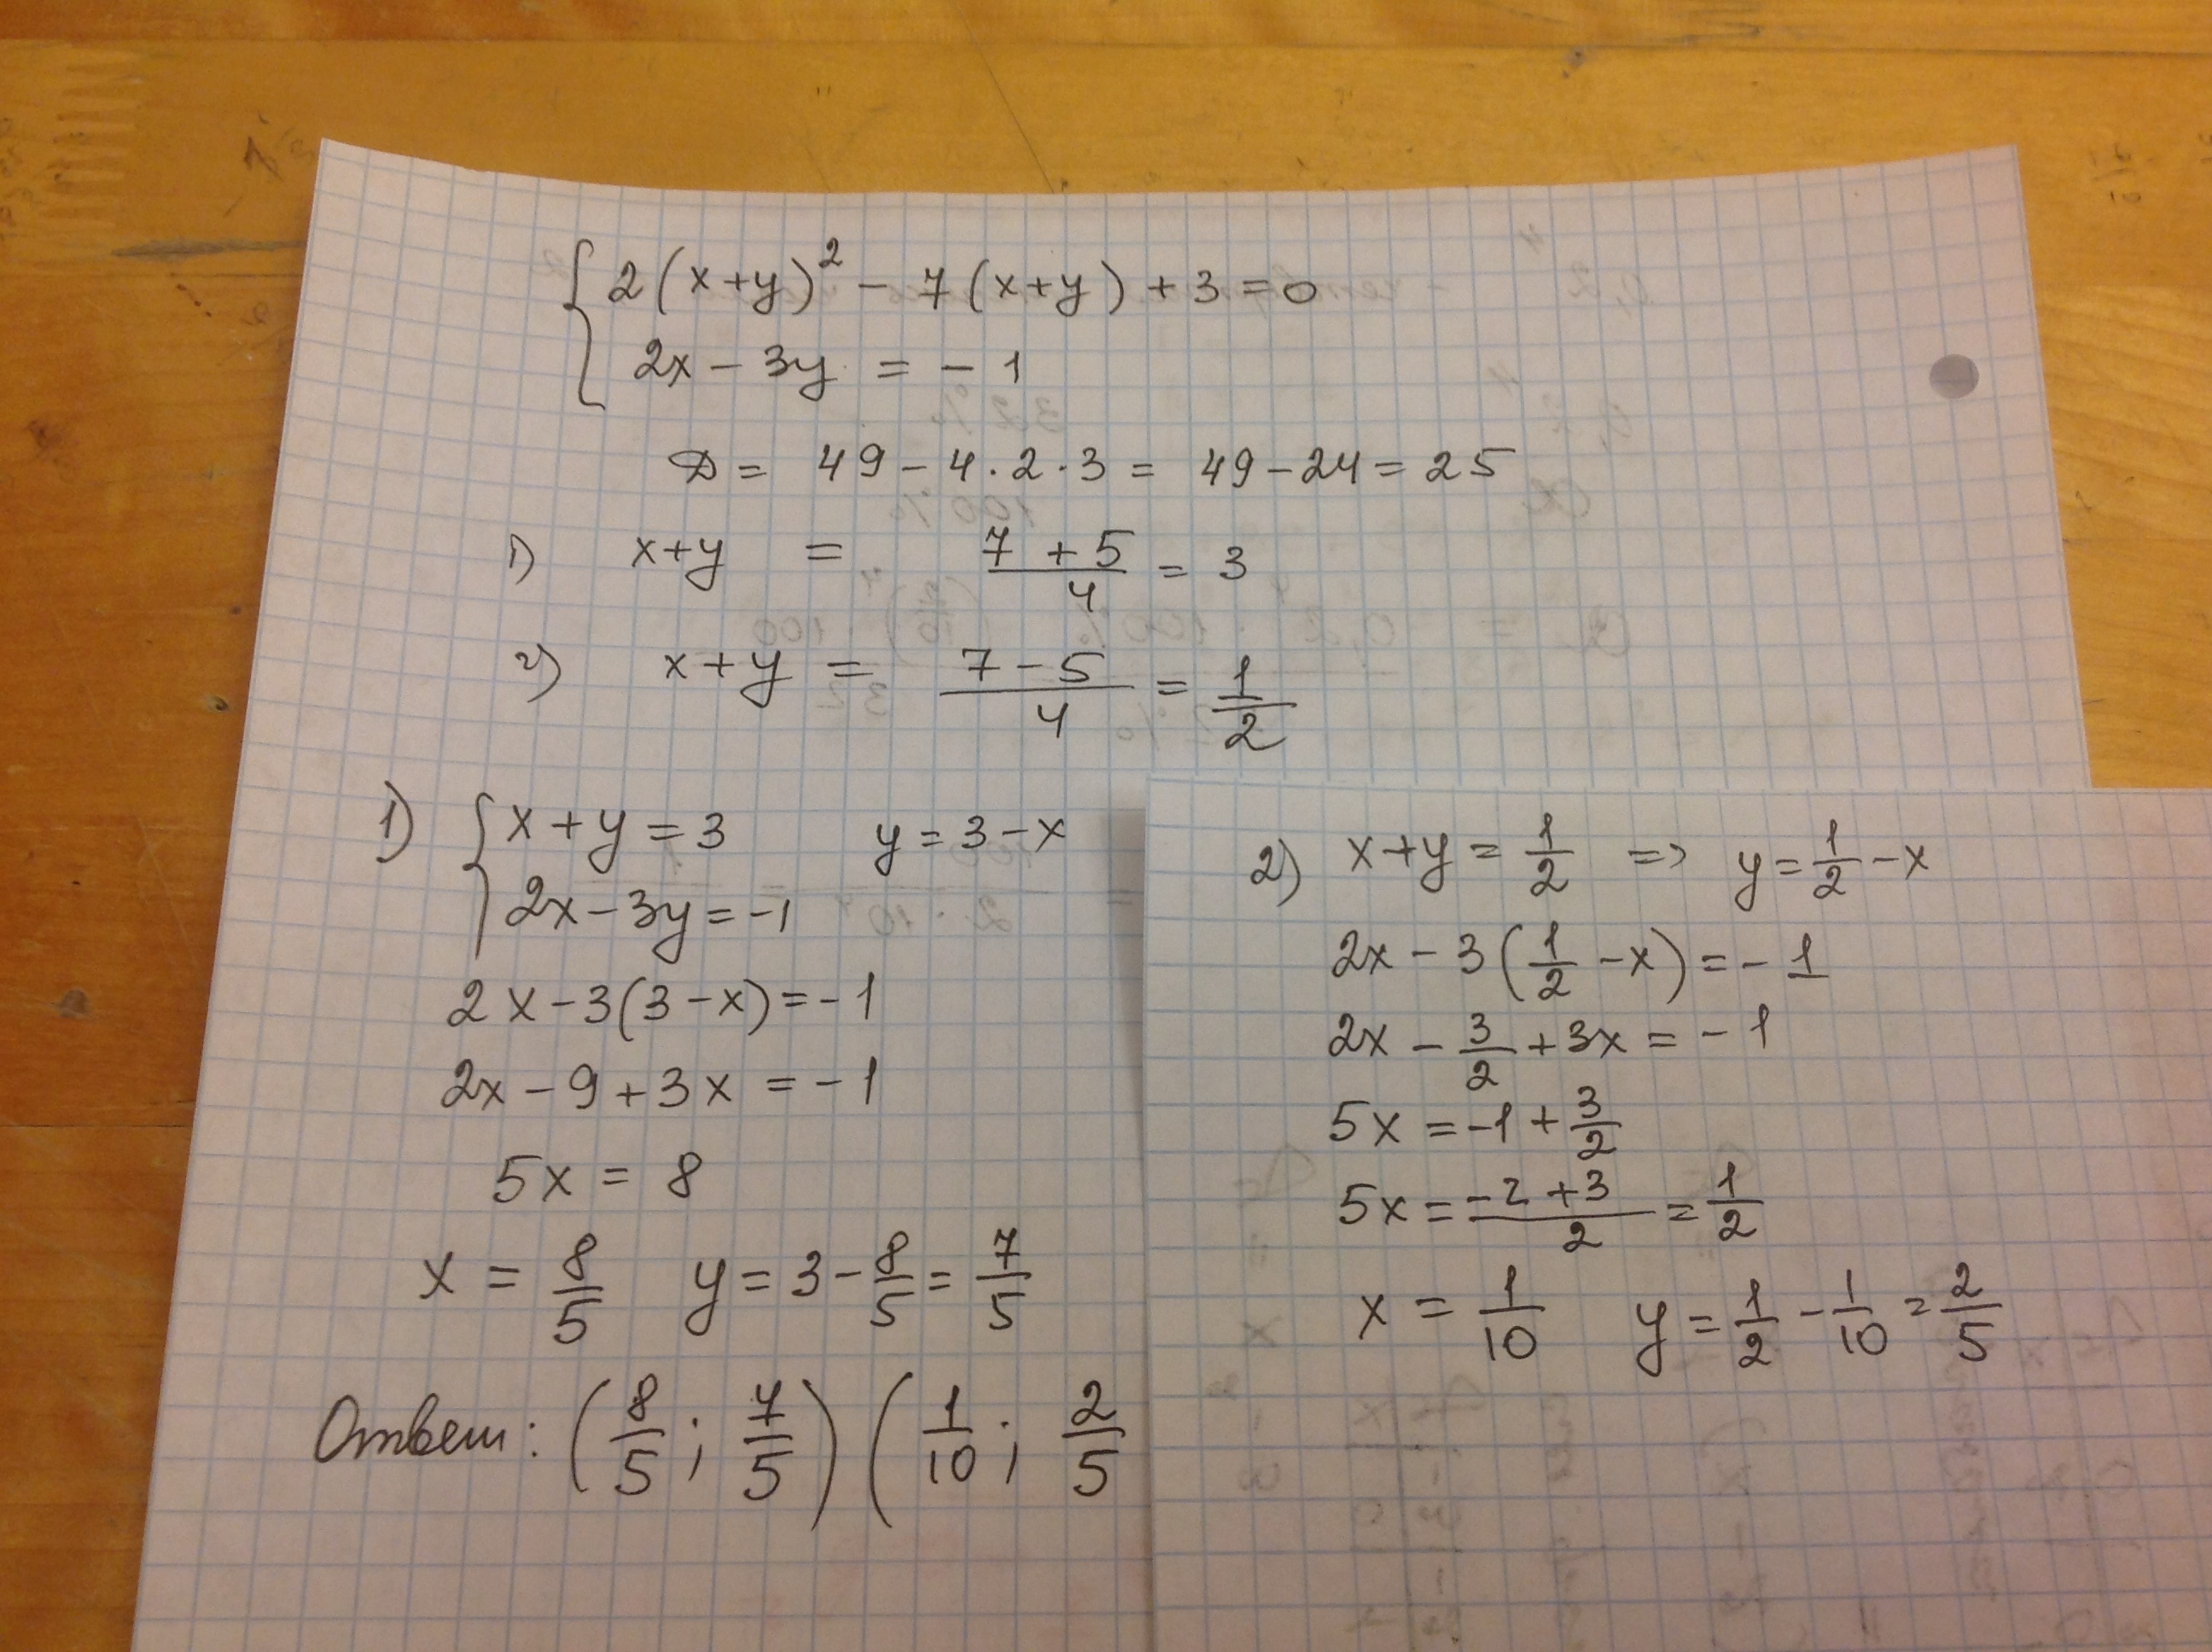 2(x+y)² - 7(x+y) + 3 = 0
2x - 3y = -1
D = 49 - 4·2·3 = 49 - 24 = 25
1) x+y = (7+5)/4 = 3
2) x+y = (7-5)/4 = 1/2
1) { x+y = 3 y = 3-x
2x - 3y = -1
2x - 3(3-x) = -1
2x - 9 + 3x = -1
5x = 8
x = 8/5 y = 3 - 8/5 = 7/5
Ответ: (8/5; 7/5) (1/10; 2/5
2) x+y = 1/2 => y = 1/2 - x
2x - 3(1/2 - x) = -1
2x - 3/2 + 3x = -1
5x = -1 + 3/2
5x = (-2+3)/2 = 1/2
x = 1/10 y = 1/2 - 1/10 = 2/5